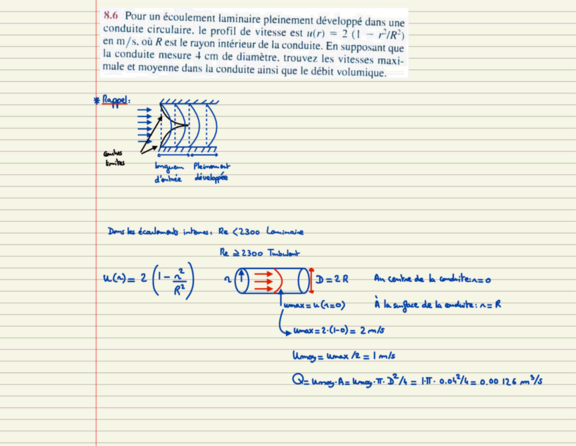 8.6 Pour un écoulement laminaire pleinement développé dans une
conduite circulaire, le profil de vitesse est u(r) = 2 (1 − r²/R²)
en m/s, où R est le rayon intérieur de la conduite. En supposant que
la conduite mesure 4 cm de diamètre, trouvez les vitesses maxi-
male et moyenne dans la conduite ainsi que le débit volumique.
* Rappel:
couches
limites
longueur
d'entrée
Pleinement
développée
Dans les écoulements internes: Re < 2300 Laminaire
Re ≥ 2300 Turbulent
u(r) = 2 (1 - r²/R²)
r
D = 2R
Au centre de la conduite: r = 0
umax = u(r=0)
À la surface de la conduite: r = R
umax = 2·(1-0) = 2 m/s
Umoy = umax /2 = 1 m/s
Q = Umoy·A = Umoy·π·D²/4 = 1·π·0.04²/4 = 0.00126 m³/s